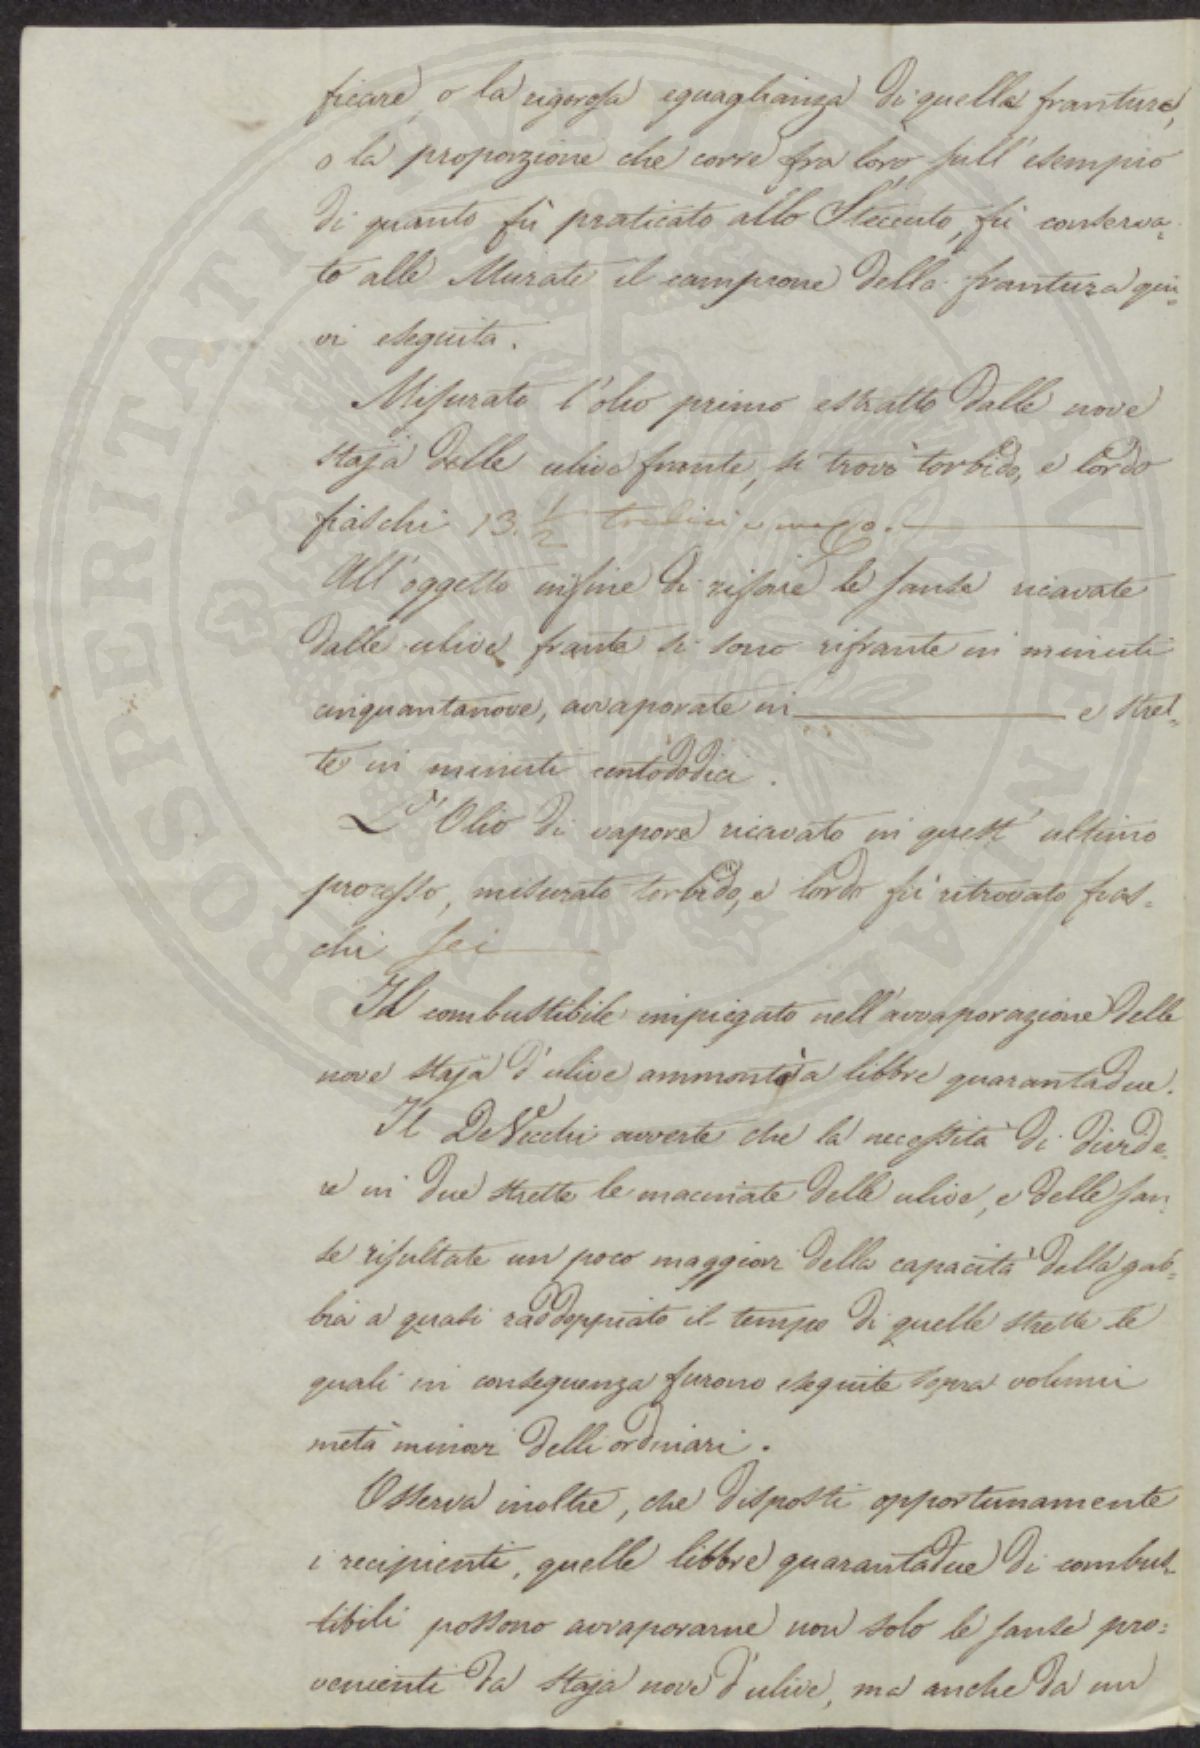 ficare, o la rigorosa eguaglianza di quella frantura,
o la proporzione che corre fra loro, sull'esempio
di quanto fù praticato allo Steccuto, fù conserva=
to alle Murate il campione della frantura qui=
vi eseguita.
Misurato l'olio primo estratto dalle nove
staja delle ulive frante, si trovò torbido, e lordo
fiaschi 13. 1/2 tredici e mezzo.
All'oggetto infine di rifare le sanse ricavate
dalle ulive frante si sono rifrante in minuti
cinquantanove, avvaporate in e stret=
te in minuti centododici.
L'Olio di vapore ricavato in quest'ultimo
processo, misurato torbido, e lordo fù ritrovato fias=
chi sei
Il combustibile impiegato nell'avvaporazione delle
nove staja d'ulive ammontò a libbre quarantadue.
Il De Vecchi avverte che la necessità di divide=
re in due strette le macinate delle ulive, e delle san=
se risultate un poco maggiori della capacità della gab=
bia a quasi raddoppiato il tempo di quelle strette le
quali in conseguenza furono eseguite sopra volumi
metà minori delli ordinari.
Osserva inoltre, che disposti opportunamente
i recipienti, quelle libbre quarantadue di combus=
tibili possono avvaporarne non solo le sanse pro=
venienti da staja nove d'ulive, ma anche da un
PROSPERITATI PUBLICAE AU